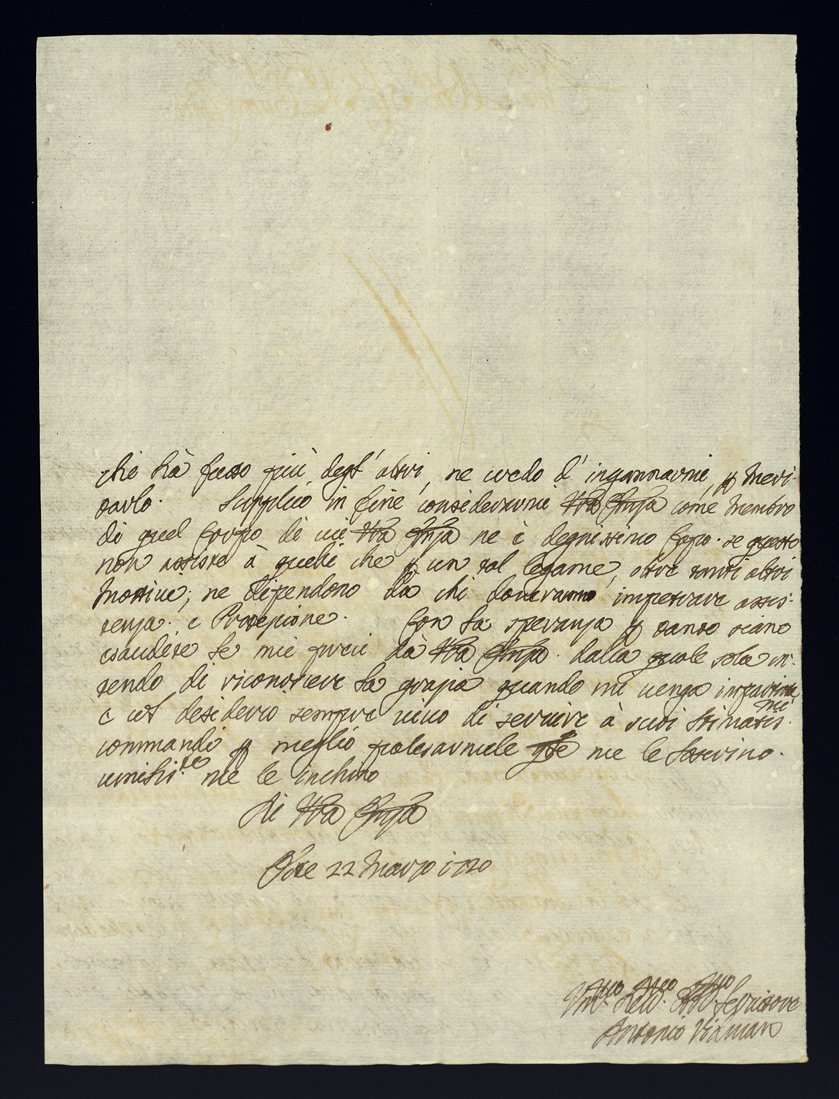 che hà fatto più degl' altri, ne credo d' ingannarmi, p meri-
tarlo. Supplico in fine considerarmi Vra come membro
di quel Corpo di cui Vra ne è degnissimo Capo. se questo
non assiste à quelli che p un tal legame, oltre tanti altri
Mottivi, ne dipendono da chi doveranno impetrare assis-
tenza. e Protezione. Con la speranza p tanto siano
esaudite le mie preci dà Vra dalla quale sola in-
tendo di riconoscere la grazia quando mi venga impartita
e col desiderio sempre vivo di servire à suoi stimatis.mi
commandi p meglio me le soscrivo.
umilis.te me le inchino
Di Vra
22 Marzo 1720
Um.o Dev.o Obb.o Servitore
Antonio